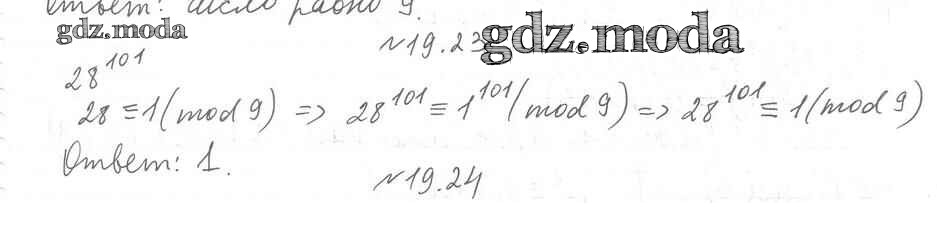 Ответ: число равно 9.
gdz.moda
№19.23 gdz.moda
28^101
28 ≡ 1 (mod 9) => 28^101 ≡ 1^101 (mod 9) => 28^101 ≡ 1 (mod 9)
Ответ: 1.
№19.24